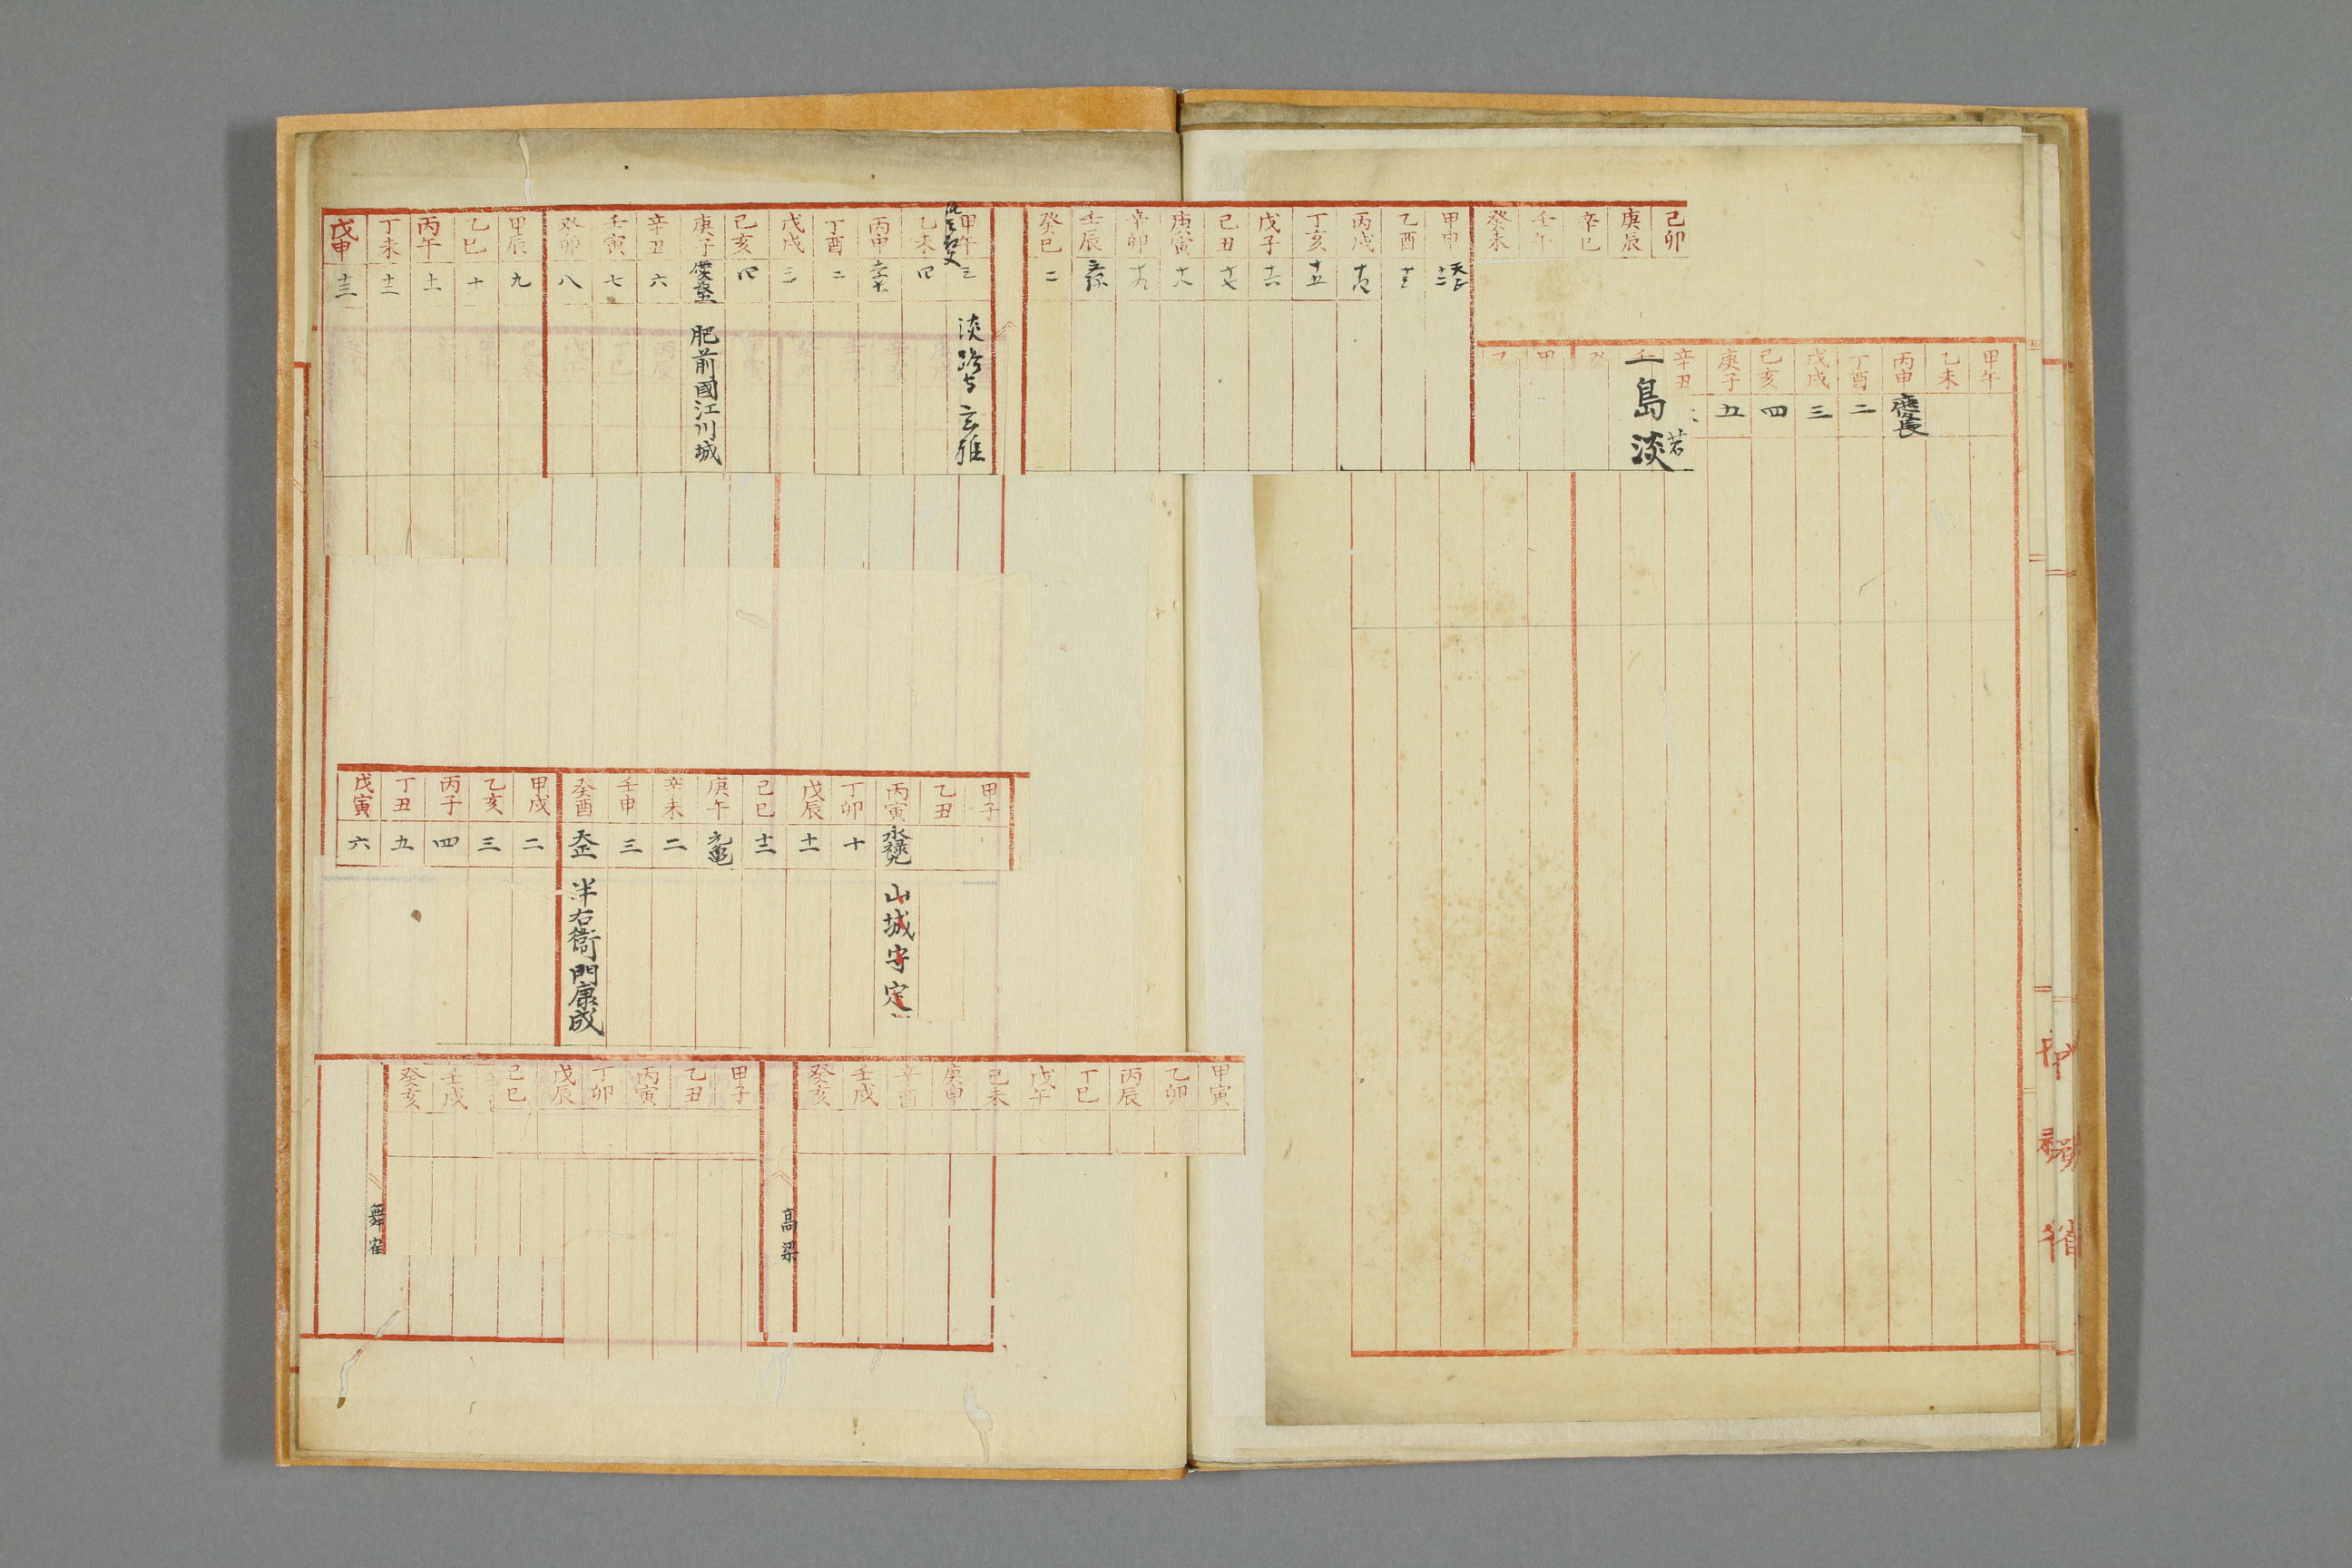 甲午
乙未
丙申 慶長
丁酉 二
戊戌 三
己亥 四
庚子 五
辛丑
癸
甲
乙
島淡
若
己卯
庚辰
辛巳
壬午
癸未
甲申
乙酉 十三
丙戌 十四
丁亥 十五
戊子 十六
己丑 十七
庚寅 十八
辛卯 十九
壬辰 文禄
癸巳 二
甲午 三 淡路守玄雅
乙未 四
丙申
丁酉 二
戊戌 三
己亥 四
庚子 慶長五 肥前國江川城
辛丑 六
壬寅 七
癸卯 八
甲辰 九
乙巳 十
丙午 十一
丁未 十二
戊申 十三
甲子
乙丑
丙寅 永禄九 山城守定
丁卯 十
戊辰 十一
己巳 十二
庚午 元亀
辛未 二
壬申 三
癸酉 天正 半右衛門康成
甲戌 二
乙亥 三
丙子 四
丁丑 五
戊寅 六
甲寅
乙卯
丙辰
丁巳
戊午
己未
庚申
辛酉
壬戌
癸亥
高梁
甲子
乙丑
丙寅
丁卯
戊辰
己巳
壬戌
癸亥
舞